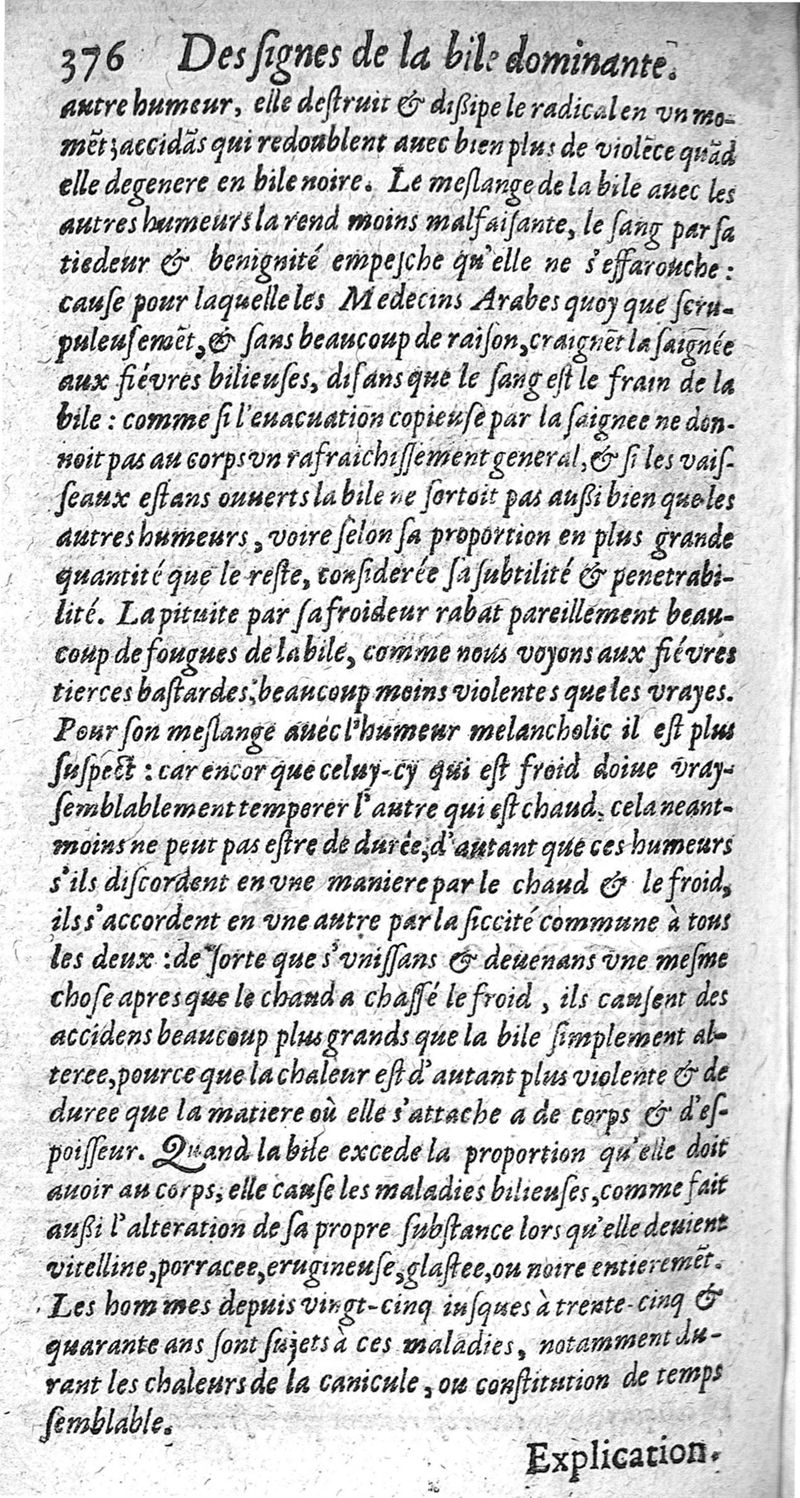 376 Des ſignes de la bile dominante.
autre humeur, elle deſtruit & diſſipe le radical en vn mo-
mẽt; accidãs qui redoublent auec bien plus de violẽce quãd
elle degenere en bile noire. Le meſlange de la bile auec les
autres humeurs la rend moins malfaiſante, le ſang par ſa
tiedeur & benignité empeſche qu'elle ne s'effarouche:
cauſe pour laquelle les Medecins Arabes quoy que ſcru-
puleuſemẽt, & ſans beaucoup de raiſon, craignẽt la ſaignée
aux fiévres bilieuſes, diſans que le ſang eſt le frain de la
bile : comme ſi l'euacuation copieuſe par la ſaignee ne don-
noit pas au corps vn rafraichiſſement general, & ſi les vaiſ-
ſeaux eſtans ouuerts la bile ne ſortoit pas auſſi bien que les
autres humeurs, voire ſelon ſa proportion en plus grande
quantité que le reſte, conſiderée ſa ſubtilité & penetrabi-
lité. La pituite par ſa froideur rabat pareillement beau-
coup de fougues de la bile, comme nous voyons aux fiévres
tierces baſtardes, beaucoup moins violentes que les vrayes.
Pour ſon meſlange auec l'humeur melancholic il eſt plus
ſuſpect : car encor que celuy-cy qui eſt froid doiue vray-
ſemblablement temperer l'autre qui eſt chaud, cela neant-
moins ne peut pas eſtre de durée, d'autant que ces humeurs
s'ils diſcordent en vne maniere par le chaud & le froid,
ils s'accordent en vne autre par la ſiccité commune à tous
les deux : de ſorte que s'vniſſans & deuenans vne meſme
choſe apres que le chaud a chaſſé le froid, ils cauſent des
accidens beaucoup plus grands que la bile ſimplement al-
teree, pource que la chaleur eſt d'autant plus violente & de
duree que la matiere où elle s'attache a de corps & d'eſ-
poiſſeur. Quand la bile excede la proportion qu'elle doit
auoir au corps, elle cauſe les maladies bilieuſes, comme fait
auſſi l'alteration de ſa propre ſubſtance lors qu'elle deuient
vitelline, porracee, erugineuſe, glaſtee, ou noire entieremẽt.
Les hommes depuis vingt-cinq iuſques à trente-cinq &
quarante ans ſont ſujets à ces maladies, notamment du-
rant les chaleurs de la canicule, ou conſtitution de temps
ſemblable.
Explication.